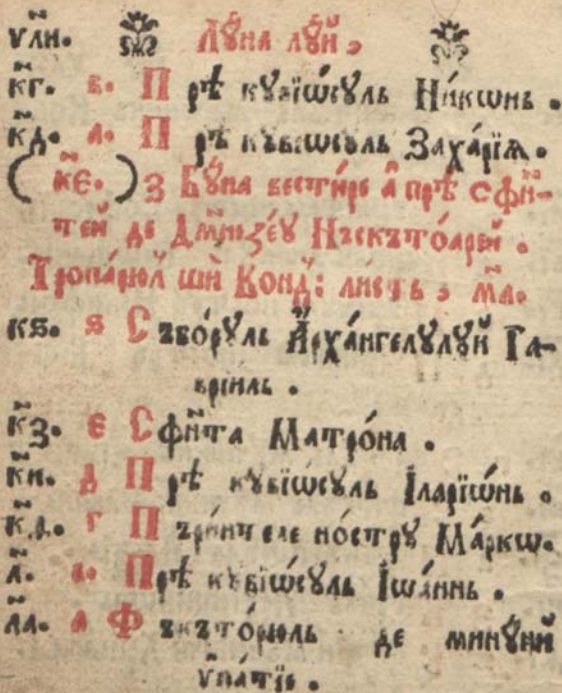 ѵ҃ли. Лꙋ́на лꙋй ,
к҃г. в. Прѣ кꙋвїѡсꙋль Ни́кѡнь .
к҃д. а. Прѣ кꙋвїѡсꙋль Заха́рїѧ .
( к҃є. ) З Бꙋ́на вести́ре а̂ прѣ сфи́н-
тей де Дмн҃изеꙋ Нъскъто́арей .
Тропа́рюл шѝ Конд҃: листъ , м҃а.
к҃ѕ. ѕ Съворꙋль А҆рха́нгелꙋлꙋй Га-
врїиль .
к҃з. є Сфи́нта Матро́на .
к҃и. д Прѣ кꙋвїѡсꙋль І҆ларїѡ́нь .
к҃ѳ. г Пъри́нтеле но́стрꙋ Ма́ркѡ .
л҃. в. Прѣ кꙋвїѡсꙋль І҆ѡа́ннь .
л҃а. а Фъкъто́рюль де минꙋ́ний
ѵ҆па́тїе .